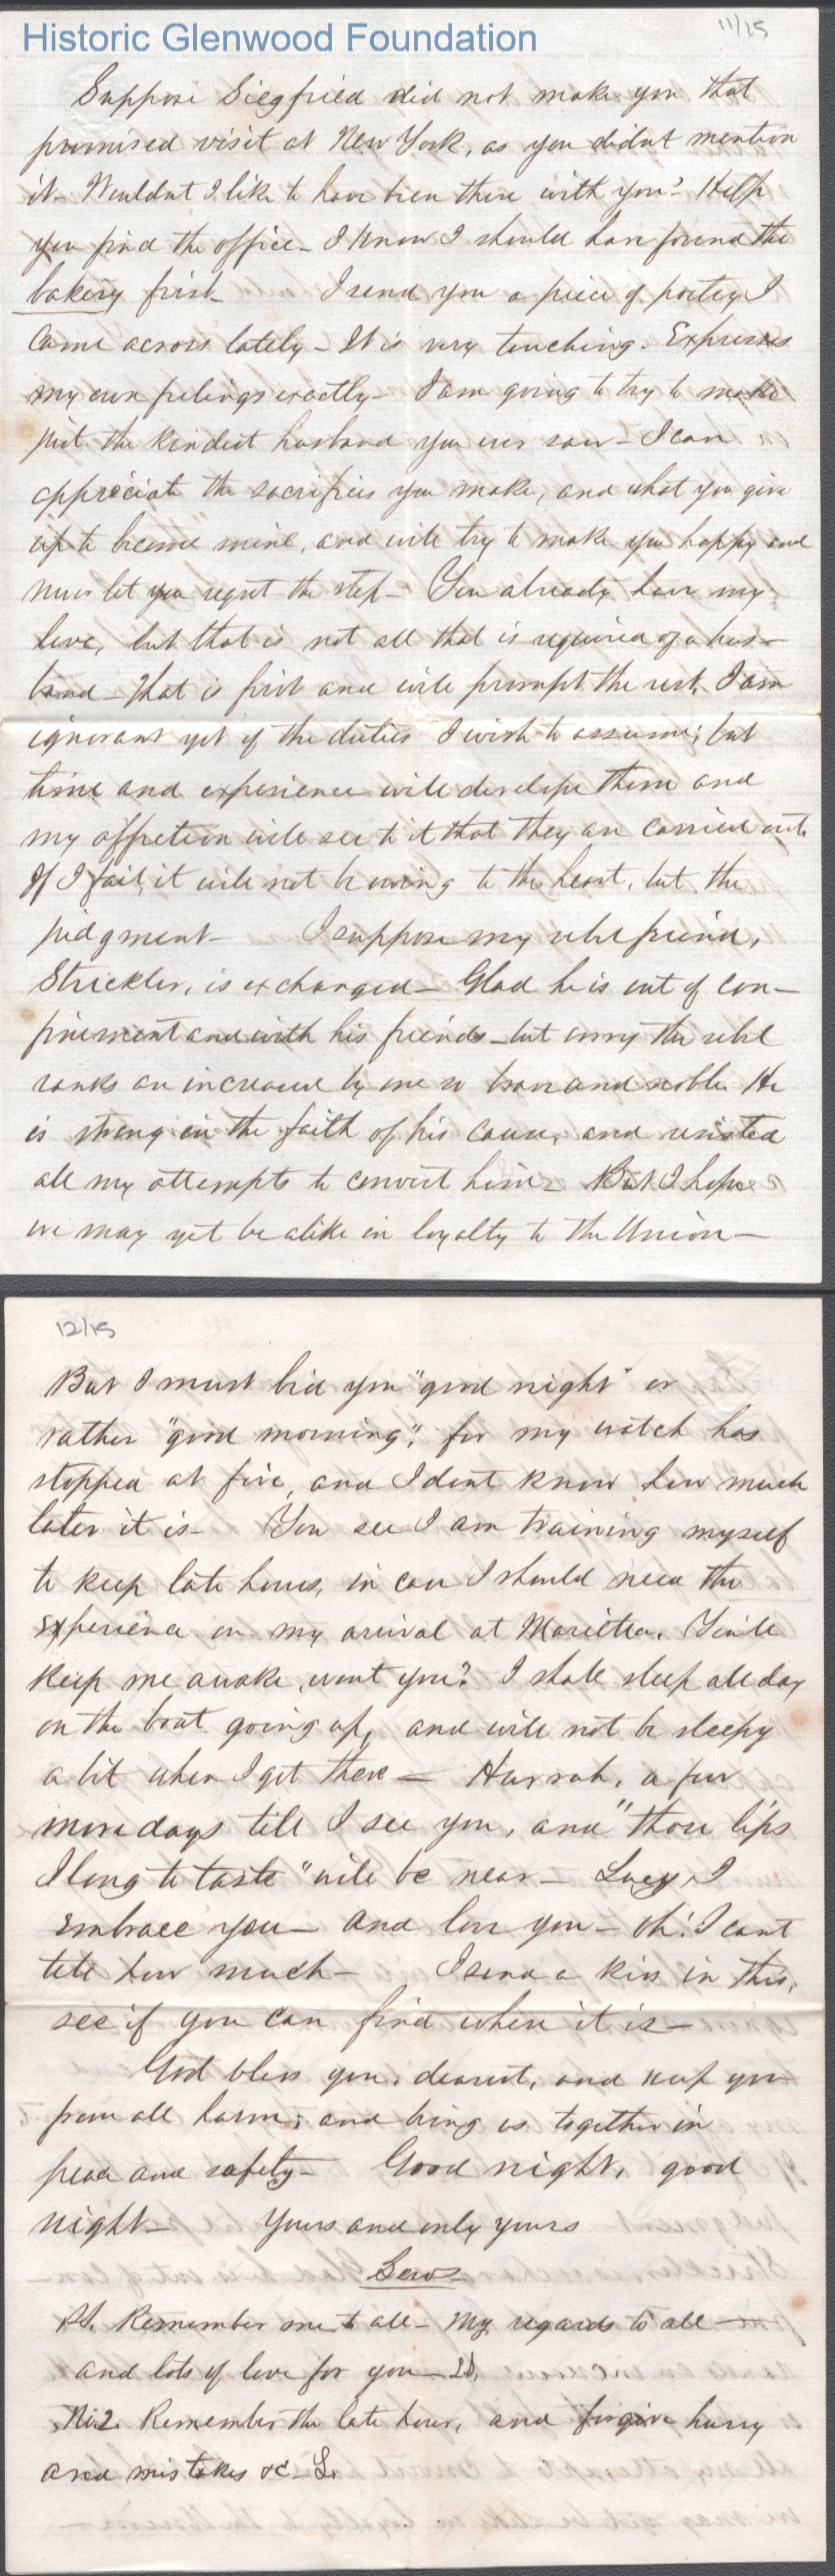 Historic Glenwood Foundation
11/15
Suppose Siegfried did not make you that
promised visit at New York, as you didnt mention
it. Wouldnt I like to have been there with you? Help
you find the office - I know I should have found the
bakery first - I send you a piece of poetry I
came across lately - It is very touching. Expresses
my own feelings exactly - I am going to try to make
just the kindest husband you ever saw - I can
appreciate the sacrifices you make, and what you give
up to become mine, and will try to make you happy and
never let you regret the step - You already have my
love, but that is not all that is required of a hus-
band - That is first and will prompt the rest. I am
ignorant yet of the duties I wish to assume; but
time and experience will develope them and
my affection will see to it that they are carried out.
If I fail, it will not be owing to the heart, but the
judgment - I suppose my rebel friend,
Strickler, is exchanged - Glad he is out of con-
finement and with his friends - but sorry the rebel
ranks are increased by one so brave and noble. He
is strong in the faith of his cause, and resisted
all my attempts to convert him - But I hope
we may yet be alike in loyalty to the Union -
12/15
But I must bid you "good night" or
rather "good morning", for my watch has
stopped at five, and I dont know how much
later it is - You see I am training myself
to keep late hours, in case I should need the
experience on my arrival at Marietta. You'll
keep me awake, wont you? I shall sleep all day
on the boat going up, and will not be sleepy
a bit when I get there - Hurrah, a few
more days till I see you, and "those lips
I long to taste" will be near - Lucy, I
embrace you - and love you - oh! I cant
tell how much - I send a kiss in this,
see if you can find where it is -
God bless you, dearest, and keep you
from all harm; and bring us together in
peace and safety - Good night, good
night - Yours and only yours
Lew
P.S. Remember me to all - My regards to all -
and lots of love for you - L.
No.2. Remember the late hour, and forgive hurry
and mistakes &c - L.